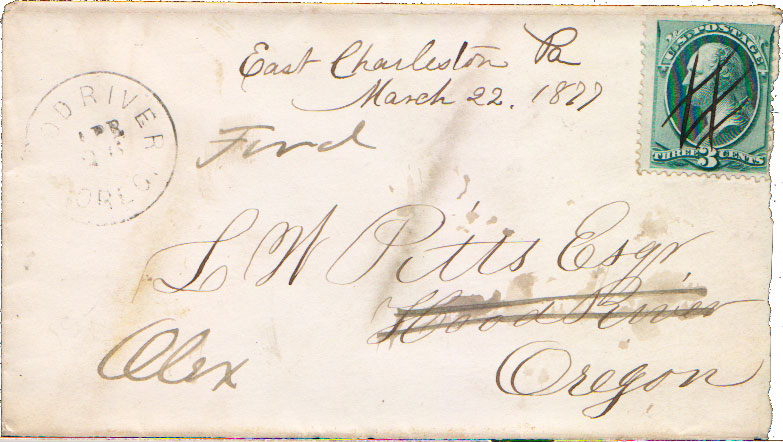 East Charleston Pa
March 22. 1877
U.S. POSTAGE
THREE 3 CENTS
OOD RIVER
APR
OREG.
Ford
L W Pitts Esqr
Hood River
Alex
Oregon